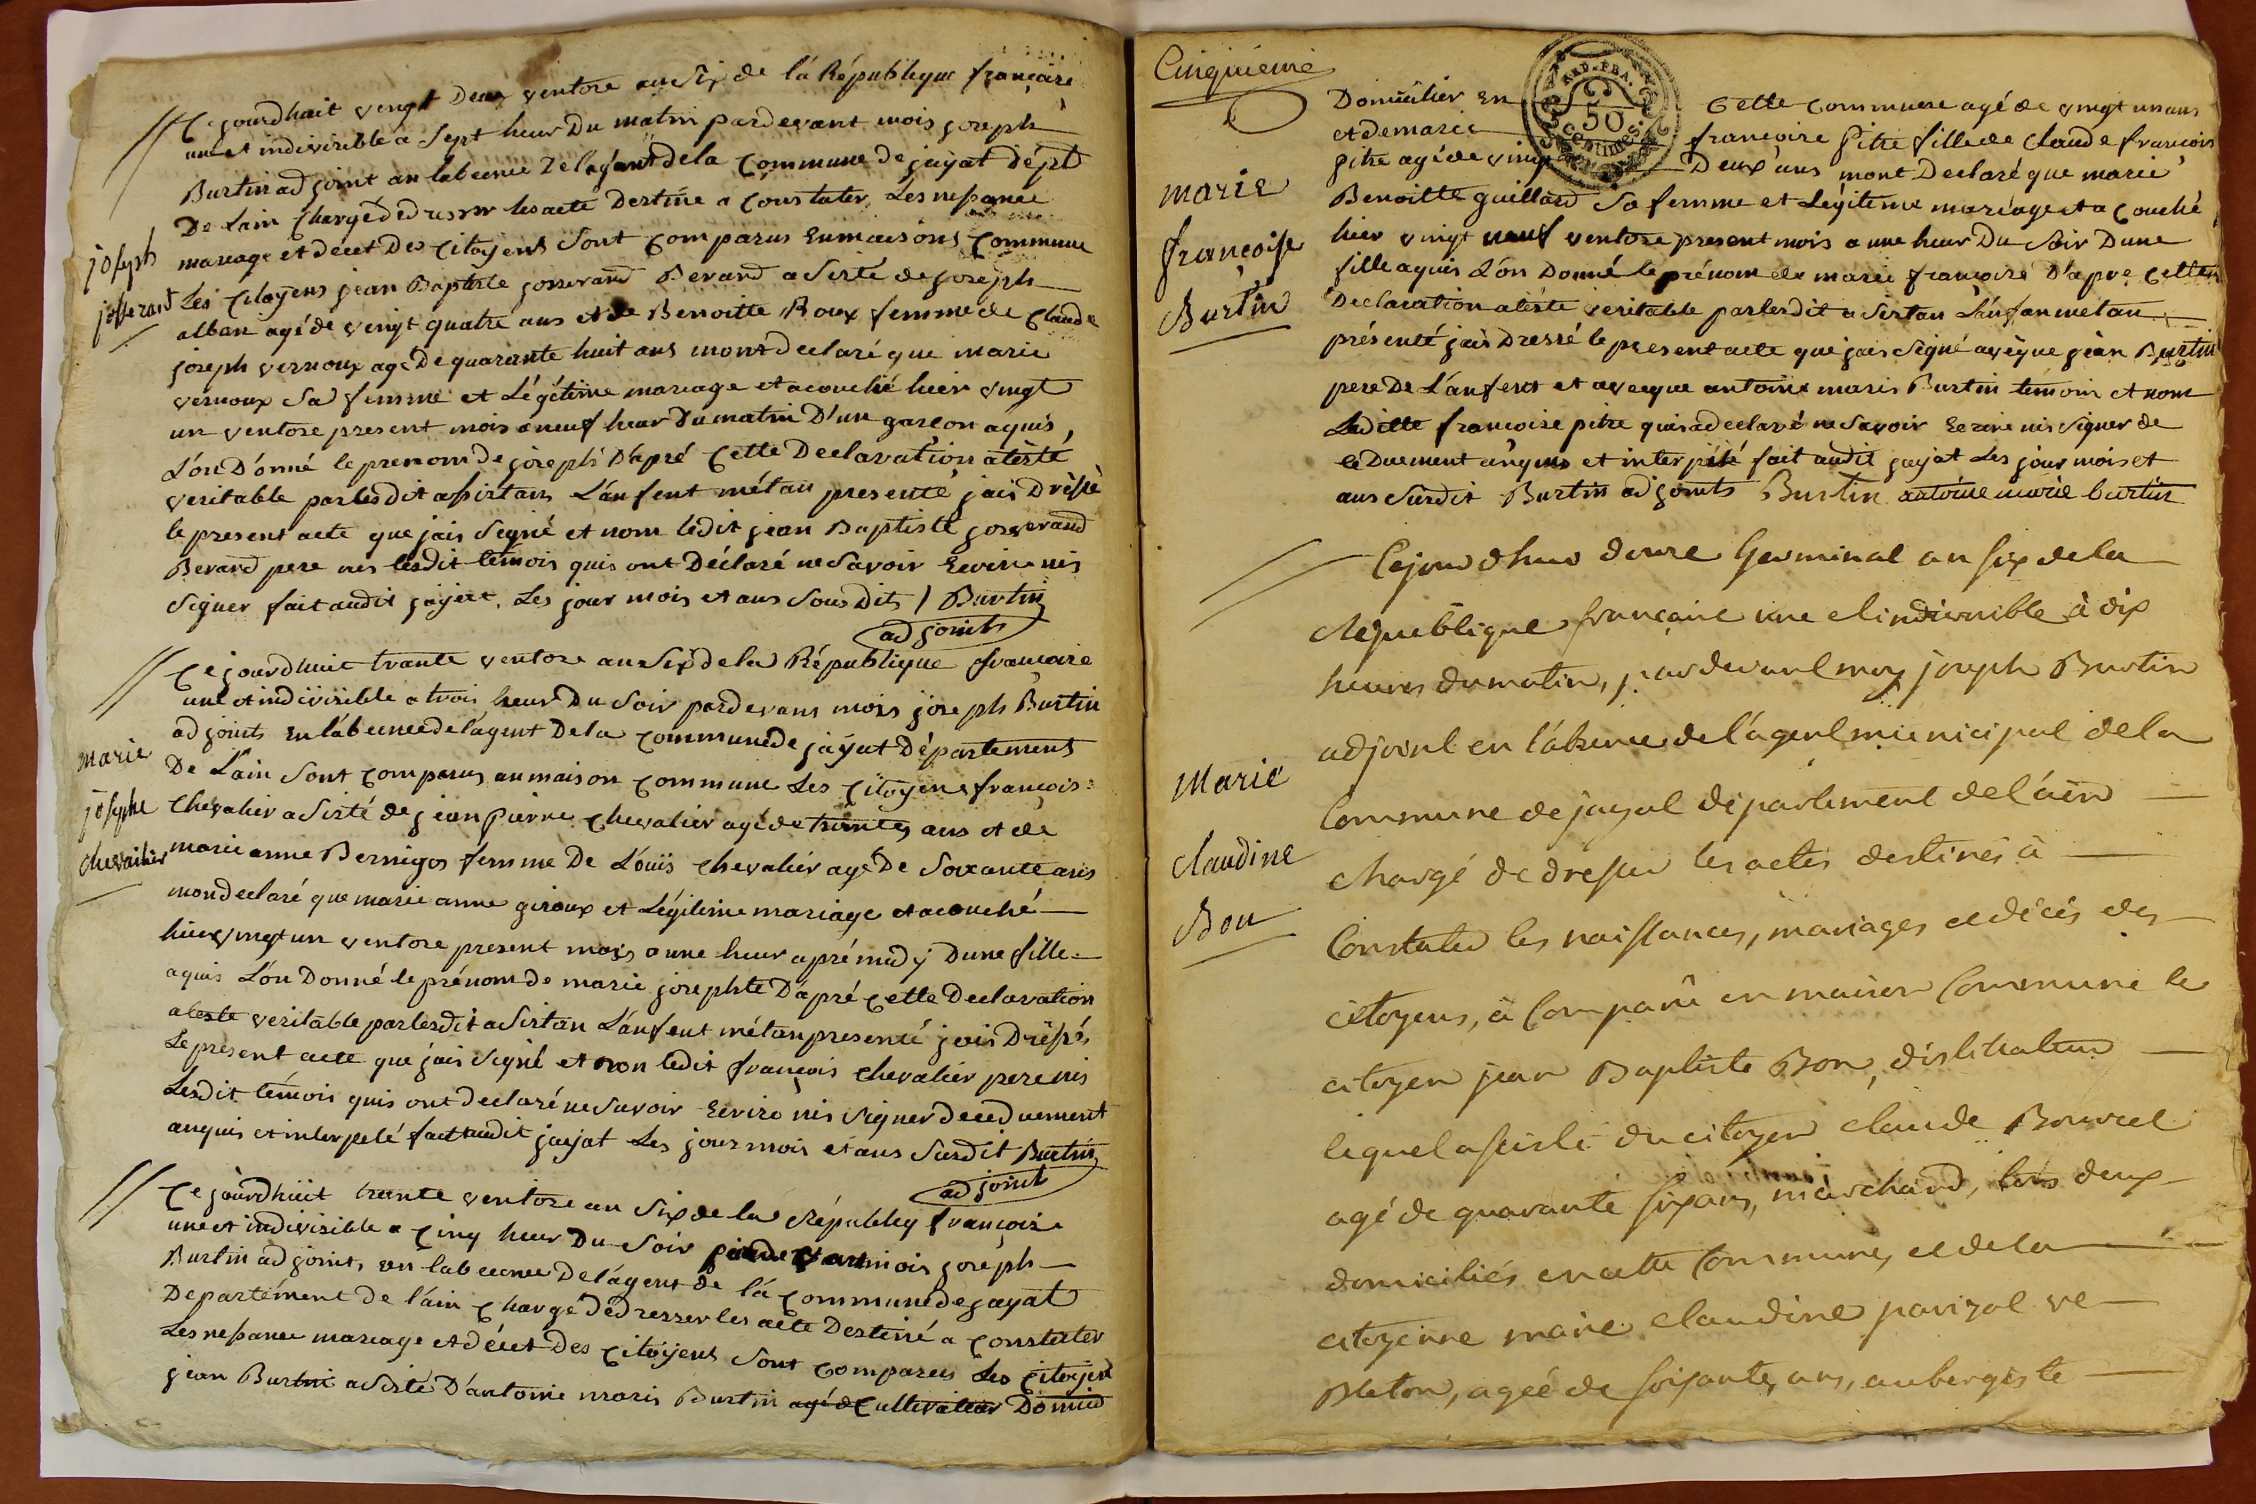 Ce jourdhuit vengt Deux ventose an Six de lá République françoise
une et indivisible a Sept heur Du matin pardevant mois joseph
Burtin adjoint an labcence De lagent de la Commune de jayat dépt
De Lain Chargé dedresser les acte Destine a Constater Les nessance
mareage et décet Des Citoyens Sont Comparus En maisons Commune
joseph
josserand
Les Citoyens jean Baptiste josserand Berand a Sisté de joseph
alban agé de vengt quatre ans et de Benoitte Roux femme de Claude
joseph vernoux agé De quarante huit ans mont declaré que marie
vernoux Sa femme et Légétime mareage et acouché hier vingt
un ventose present mois a neuf heur Du matin D'un garcon aquis,
L'on D'onné le prenom de joseph D'apré Cette Declaration atésté
veritable par lesdit assistans L'anfent métan presenté jais Dréssé
le present acte que jais Segné et nom ledit jean Baptiste josserand
Berand pere nis lesdit temois quis ont Déclaré ne Savoir Ecrire nis
Signer fait audit jayat. Les jour mois et ans Sous Dits / Burtin
adjoint
Ce jourdhuit trante ventose an Six de la République françoise
une et indivisible a trois heur Du Soir pardevans mois joseph Burtin
adjoints En lábcence de lágent De la Commune de jayat Département
De Lain Sont Comparus an maison Commune Les Citoyens françois
marie
josephe
chevailier
Chevalier a Sisté de jean pierre Chevalier agé de trente ans et de
marie anne Bernigos femme De Louis Chevalier agé De Soixante ans
mon declaré que marie anne giroux et Légitime mariage et acouché
hier vingt un ventose present mois a une heur apré mидy Dune fille
aquis L'on Donné le prénom de marie josephte D'apré Cette Declaration
ateste veritable par lesdit a Sistan L'anfent métan presenté jais Dréssé
Le present acte que jais Segné et non ledit françois Chevalier pere nis
Lesdit témois quis ont declaré ne Savoir Ecrire nis Signer de ceduement
anquis et interpelé fait audit jayat Les jour mois et ans Surdit Burtin
adjoint
Ce jourdhuit trente ventose an Six de la République françoise
une et indivisible a Cinq heur Du Soir pardevant mois joseph
Burtin adjoint, en labcence De lágent de lá Commune de jayat
Departément de láin Chargé dédresser les acte Destiné a Constater
Les nessance mareage et décet Des Citoyens Sont Comparus Les Citoyens
jean Burtin a Sisté D'antoine maris Burtin agé de Cultivateur Domici
Cinquiéme
REP. FRA.
50
centimes
Domicilier En Cette Commune agé de vingt un ans
et de marie françoise Pitre fille de Claude françois
pitre agé de vingt Deux ans mont Declaré que marie
Benoitte guillard Sa femme et Légitime mariage et a Couché
marie
françoise
Burtin
hier vingt neuf ventose present mois a une heur Du Soir Dune
fille aquis L'on Donné le prénom de marie françoise D'apre Cette
Declaration atésté veritable par lesdit a Sistan L'anfan metan
présenté jais Dressé le present acte que jais Signé avéque jean Burtin
pere De L'anfent et aveque antoine maris Burtin témoin et nom
Laditte francoise pitre quis a declaré ne Savoir Ecrire nis Signer de
ce Duement anquis et interpélé fait audit jayat Les jour mois et
ans Surdit Burtin adjoints Burtin antoine marie burtin
Cejourdhui douze Germinal an six dela
République française une et indivisible à dix
heures du matin, pardevant moy joseph Burtin
adjoint en l'absence de l'agent municipal de la
Marie
Claudine
Bon
Commune de jayat département de l'ain
chargé de dresser les actes destinés à
Constater les naissances, mariages et décés des
citoyens, à Comparû en maison Commune le
citoyen jean Baptiste Bon, distilateur
lequel assisté du citoyen claude Bouvret
agé de quarante six ans, marchand, tous deux
domiciliés en cette Commune, et dela
citoyenne marie claudine parizot ve
Pleton, agée de soixante ans, aubergiste